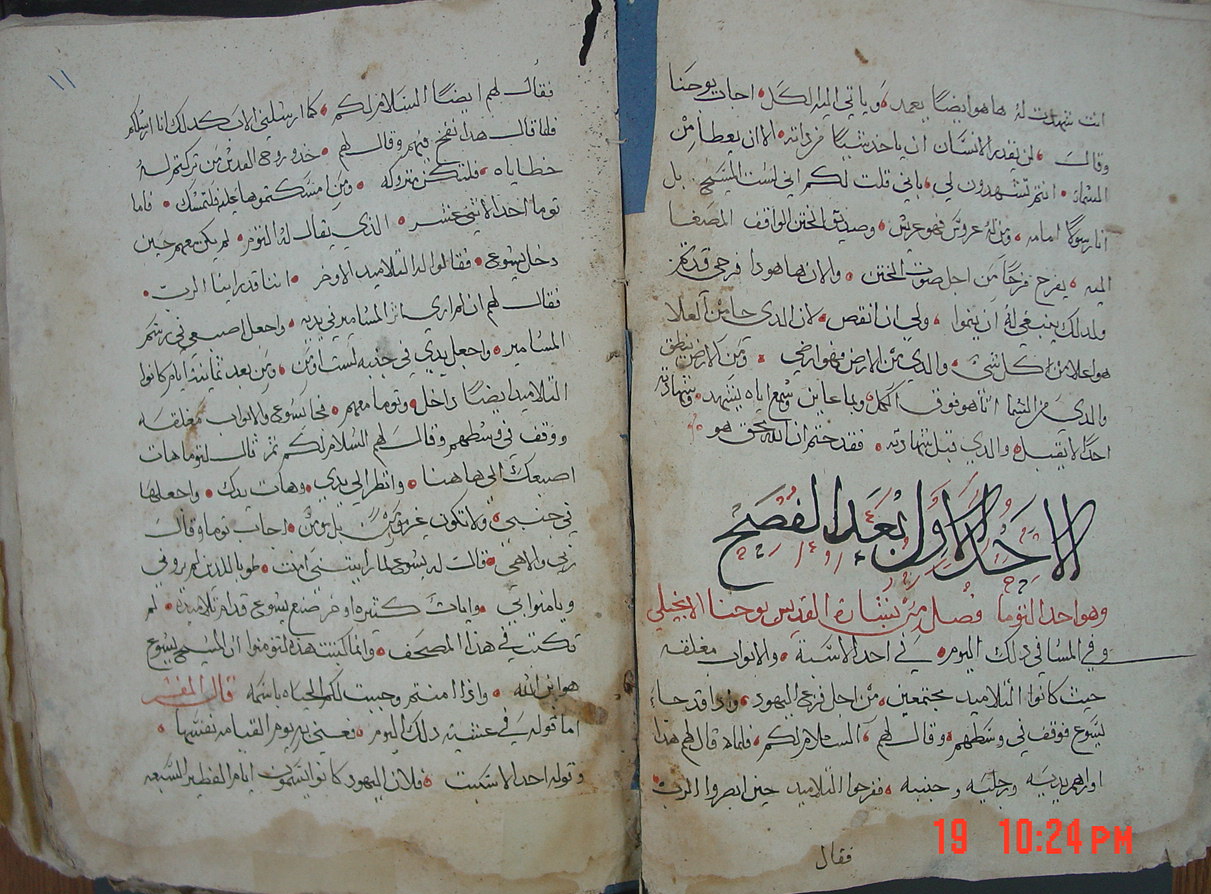 انت شهدت له ها هو ايضًا يعمد وياتي اليه الكل اجاب يوحنا
وقال لن يقدر الانسان ان ياخد شيئًا من داته الا ان يعطا من
السماء انتم تشهدون لي باني قلت لكم اني لست المسيح بل
انا رسولًا امامه ومن له عروس فهو عريس وصديق الختن الواقف المصغا
اليه يفرح فرحًا من اجل صوت الختن والان ها هودا فرحي قد تم
ولدلك ينبغي له ان ينموا ولي ان انقص لان الدي جا من العلا
هو اعلا من كل شي والدي من الارض فهو ارضي ومن الارض ينطق
والدي من السما اتا هو فوق الكل وبما عاين وسمع اياه يشهد وشهادته
احدًا لا يقبل والدي قبل شهادته فقد ختم ان الله بحق هو
الاحد الاول بعد الفصح
وهو احد التوما فصل من بشارة القديس يوحنا الانجيلي
وفي المسا في دلك اليوم في احد الاسبة والابواب مغلقه
حيث كانوا التلاميد مجتمعين من اجل فزع اليهود وادا قد جاء
يسوع فوقف في وسطهم وقال لهم السلام لكم فلما قال لهم هدا
اوراهم يديه ورجليه وجنبه ففرحوا التلاميد حين ابصروا الرب
فقال
١١
فقال لهم ايضًا السلام لكم كما ارسلني الاب كدلك انا ارسلكم
فلما قال هدا نفخ فيهم وقال لهم خدو روح القدس من تركتم له
خطاياه فلتكن متروكه ومن مسكتموها عليه فلتمسك فاما
توما احد الاثني عشر الدي يقال له التوم لم يكن معهم حين
دخل يسوع فقالوا له التلاميد الاوخر اننا قد راينا الرب
فقال لهم ان لم اري اثر المسامير في يديه واجعل اصبعي في رسم
المسامير واجعل يدي في جنبه لست اومن ومن بعد ثمانية ايام كانوا
التلاميد ايضًا داخل وتوما معهم فجا يسوع والابواب مغلقه
ووقف في وسطهم وقال لهم السلام لكم ثم قال لتوما هات
اصبعك الي هاهنا وانظر الي يدي وهات يدك واجعلها
في جنبي ولا تكون غير مومن بل مومن اجاب توما وقال
ربي والاهي قال له يسوع لما رايتني امنت طوبا للدين لم يروني
ويامنوا بي وايات كتيره اوخر صنع يسوع قدام تلاميده لم
تكتب في هدا المصحف وانما كتبت هده لتومنوا ان المسيح يسوع
هو ابن الله وادا امنتم وجبت لكم الحياه باسمه قال المفسر
اما قوله في عشية دلك اليوم فعني به يوم القيامه نفسها
وقوله احد الاسبت فلان اليهود كانوا يسمون ايام الفطير السبعه